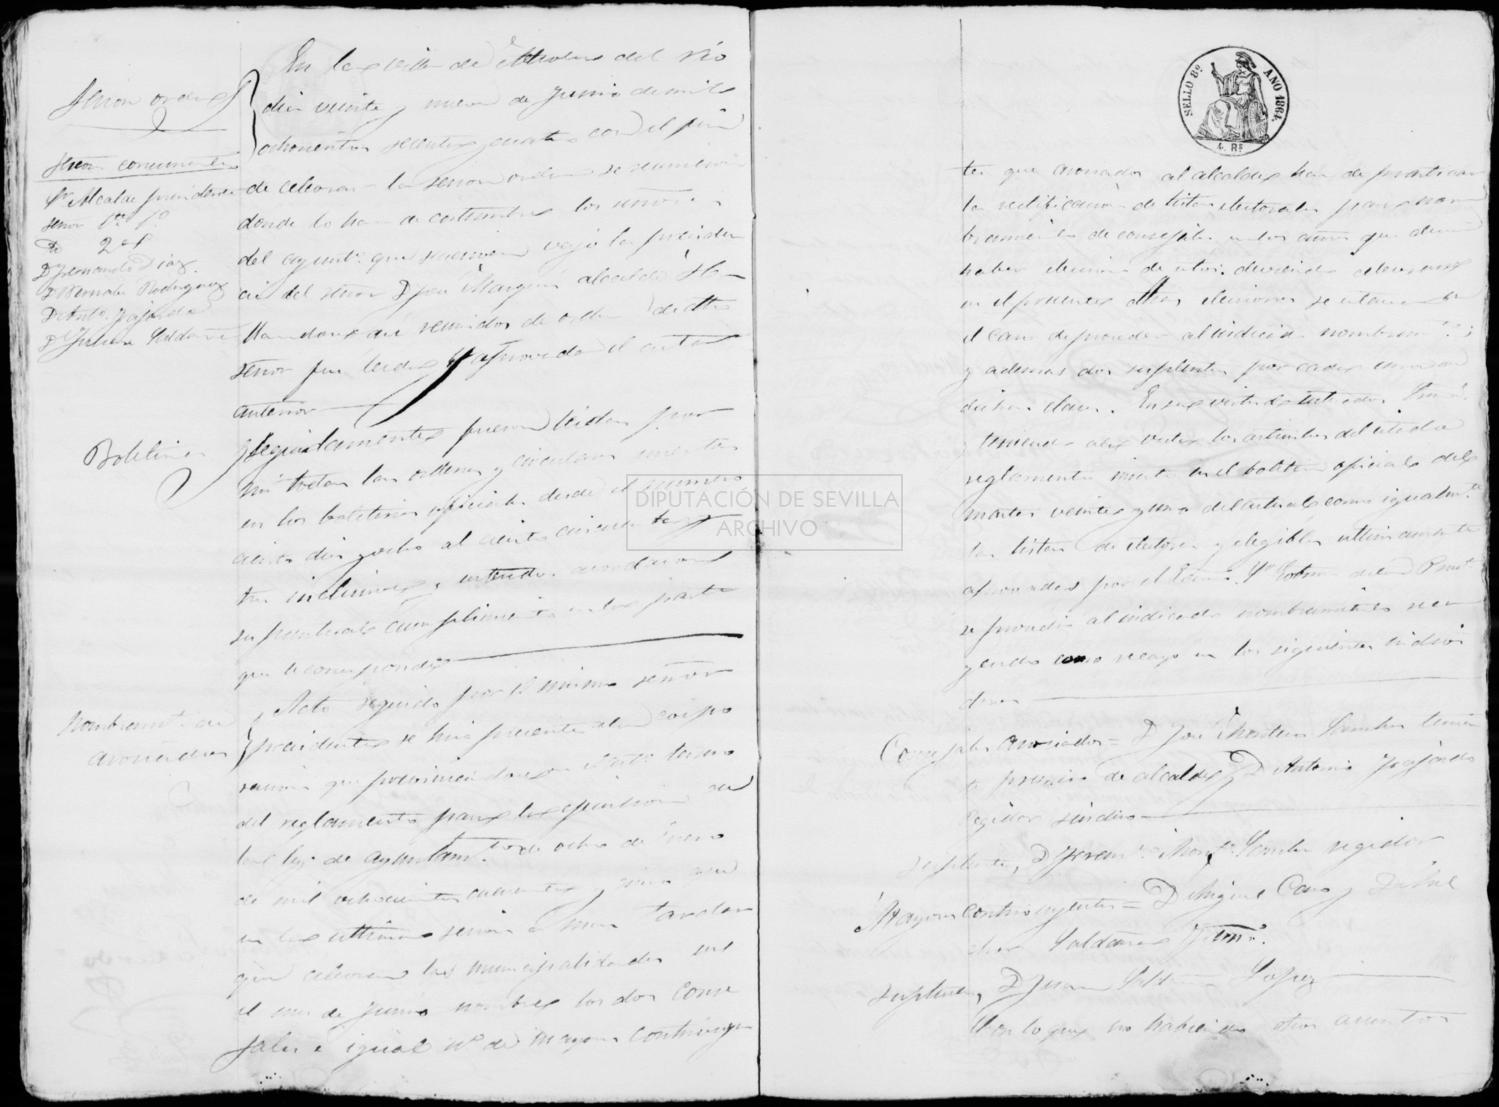 Sesion ordinª
Señores concurrentes
Sr Alcalde presidente
Señor Tte 1º
Id 2º
D Fernando Diaz
D Bernabe Rodriguez
D Antº Fajardo
D Juan Saldaña
En la villa de del rio
dia veinte y nueve de Junio de mil
ochocientos sesenta y cuatro con el fin
de celevar la sesion ordinª se reunieron
donde lo han de costumbre los señores
del ayuntº que suscriven vajo la presiden
cia del señor D José Marquez alcalde
Hallandose asi reunidos de orden de dho
señor fue leida y aprovada el acta
anterior
Boletines
Seguidamente fueron leidas por
mi todas las ordenes y circulares insertas
en los boletines oficiales desde el numero
ciento diez y ocho al ciento cincuenta y
tres inclusives, y enterados acordaron
su puntual cumplimiento en la parte
que le corresponde
Nombramtº de
asociados
Acto seguido por el mismo señor
presidente se hizo presente a la corpo
racion que previniendose en el artº
del reglamento para la ejecucion de
la ley de ayuntamtºs de de Enero
de mil ochocientos cuarenta y cinco que
en la ultima sesion a mas tardar
que celevaran las municipalidades en
el mes de Junio nombren los dos Conse
jales e igual nº de mayores contribuyen
SELLO 8º AÑO 1864.
4 Rs
tes que asociados al alcalde han de practicar
la rectificacion de listas electorales para nom
bramiento de consejales en los años que deva
haber eleccion de estos, deviendo celevarse
en el presente dhas elecciones se estava en
el caso de proceder al indicado nombramtº
y ademas dos suplentes por cada una de
dichas clases. En su virtud
teniendo a la vista los articulos del citado
reglamento inserto en el boletin oficial del
martes veinte y uno del actual como igualmtº
las listas de electores y elegibles ultimamente
aprovadas por el Exmo Sr Gobor de la Provª
se procedio al indicado nombramiento recay
endo como recayo en los siguientes indivi
duos
Consejales Asociados = D José Montero Sanchez tenien
te primero de alcalde y D Antonio Fajardo
Regidor sindico
Suplente, D Franº Montº Sanchez regidor
Mayores Contribuyentes = D Miguel Caro y D
Saldaña
Suplente, D Juan Lopez
Con lo que no habiendo otros asuntos
DIPUTACIÓN DE SEVILLA
ARCHIVO